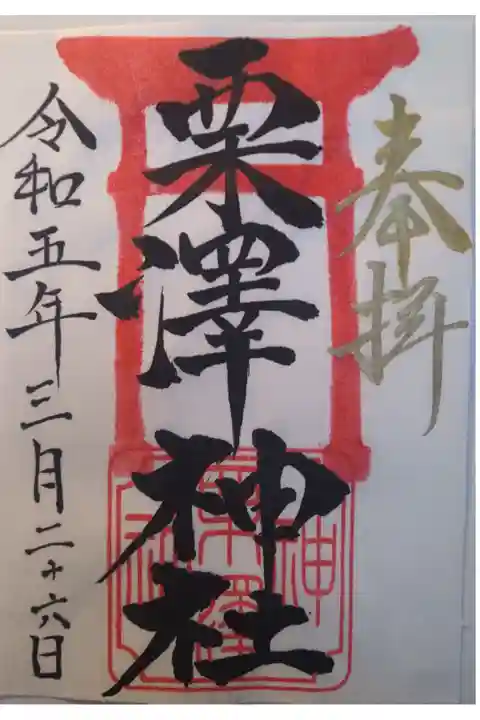 奉拝
栗澤神社
令和五年三月二十六日
栗澤神社